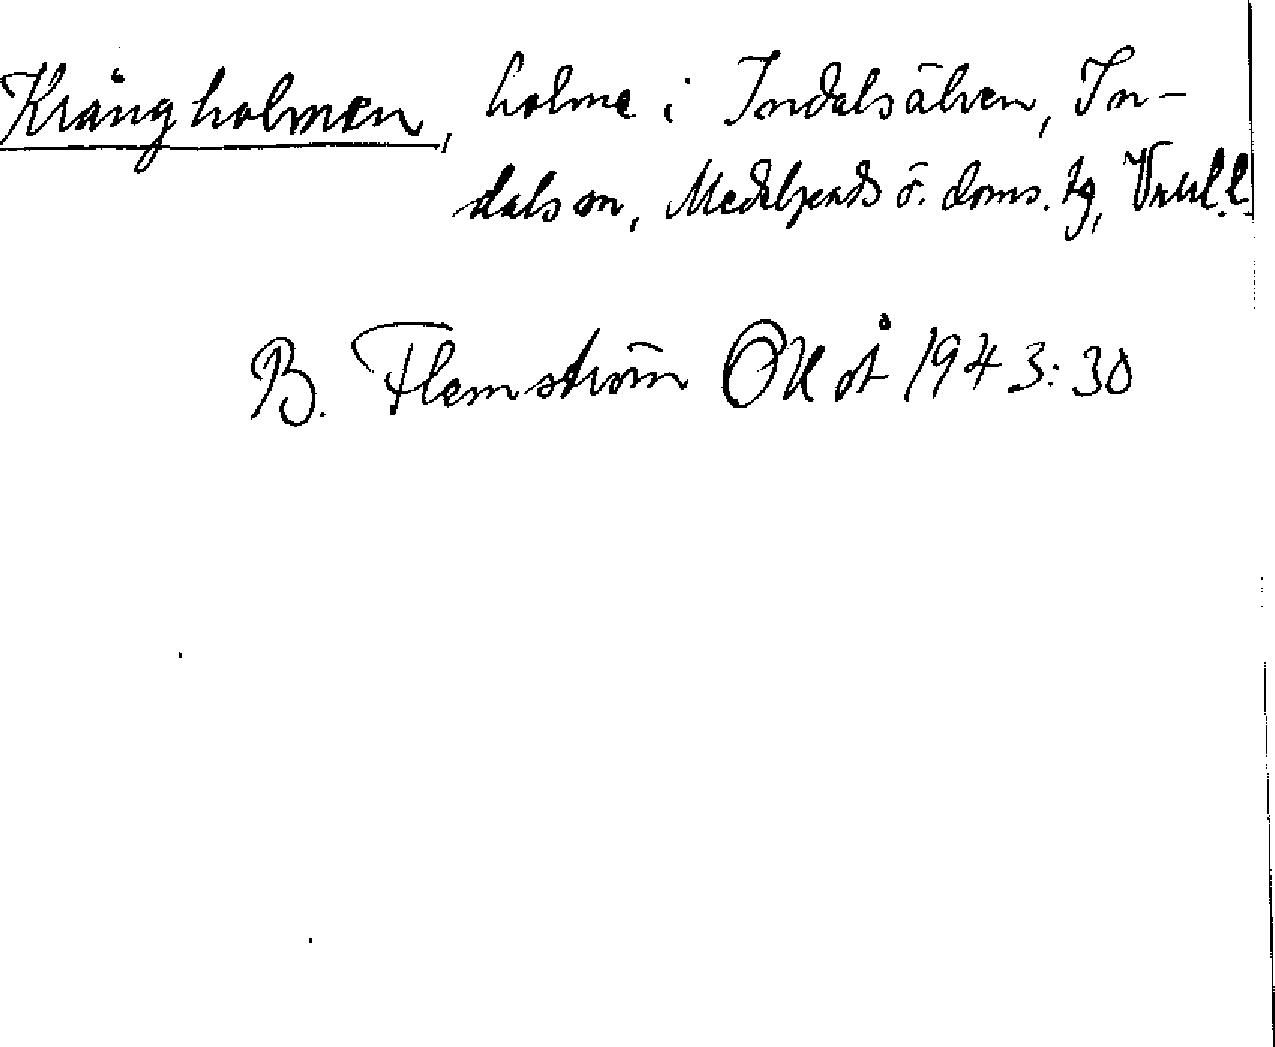 Krångholmen, holme i Indalsälven, In-
dals sn, Medelpads ö. doms. tg, Vnrl. l.
B. Flemström OUÅ 1943:30